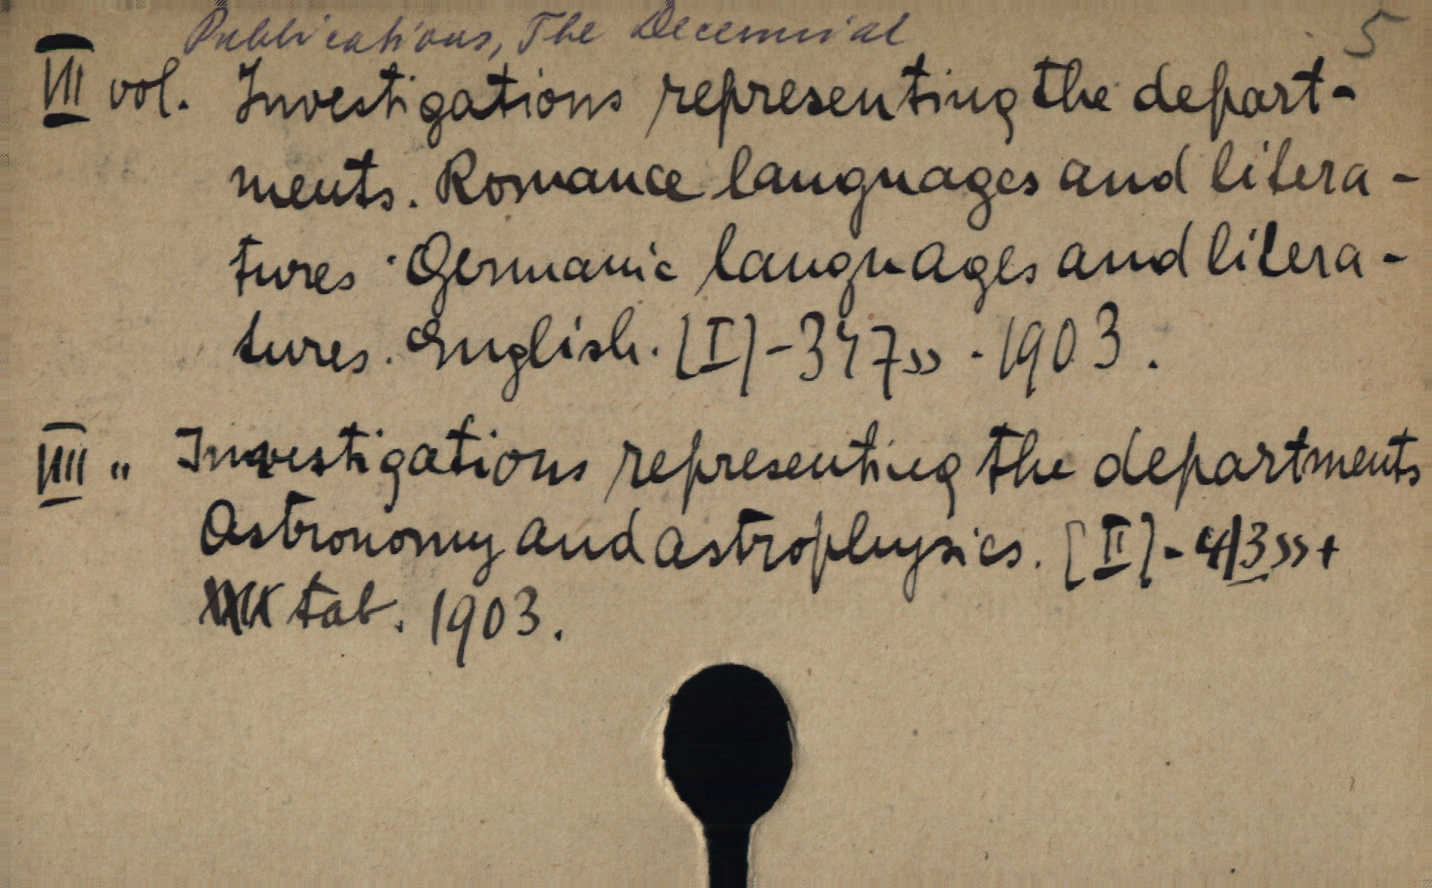 Publications, The Decennial 5
VII vol. Investigations representing the depart-
ments. Romance languages and litera-
tures. Germanic languages and litera-
tures. English. [I]-347 ss. 1903.
VIII " Investigations representing the departments
Astronomy and astrophysics. [II]-413 ss +
tab. 1903.